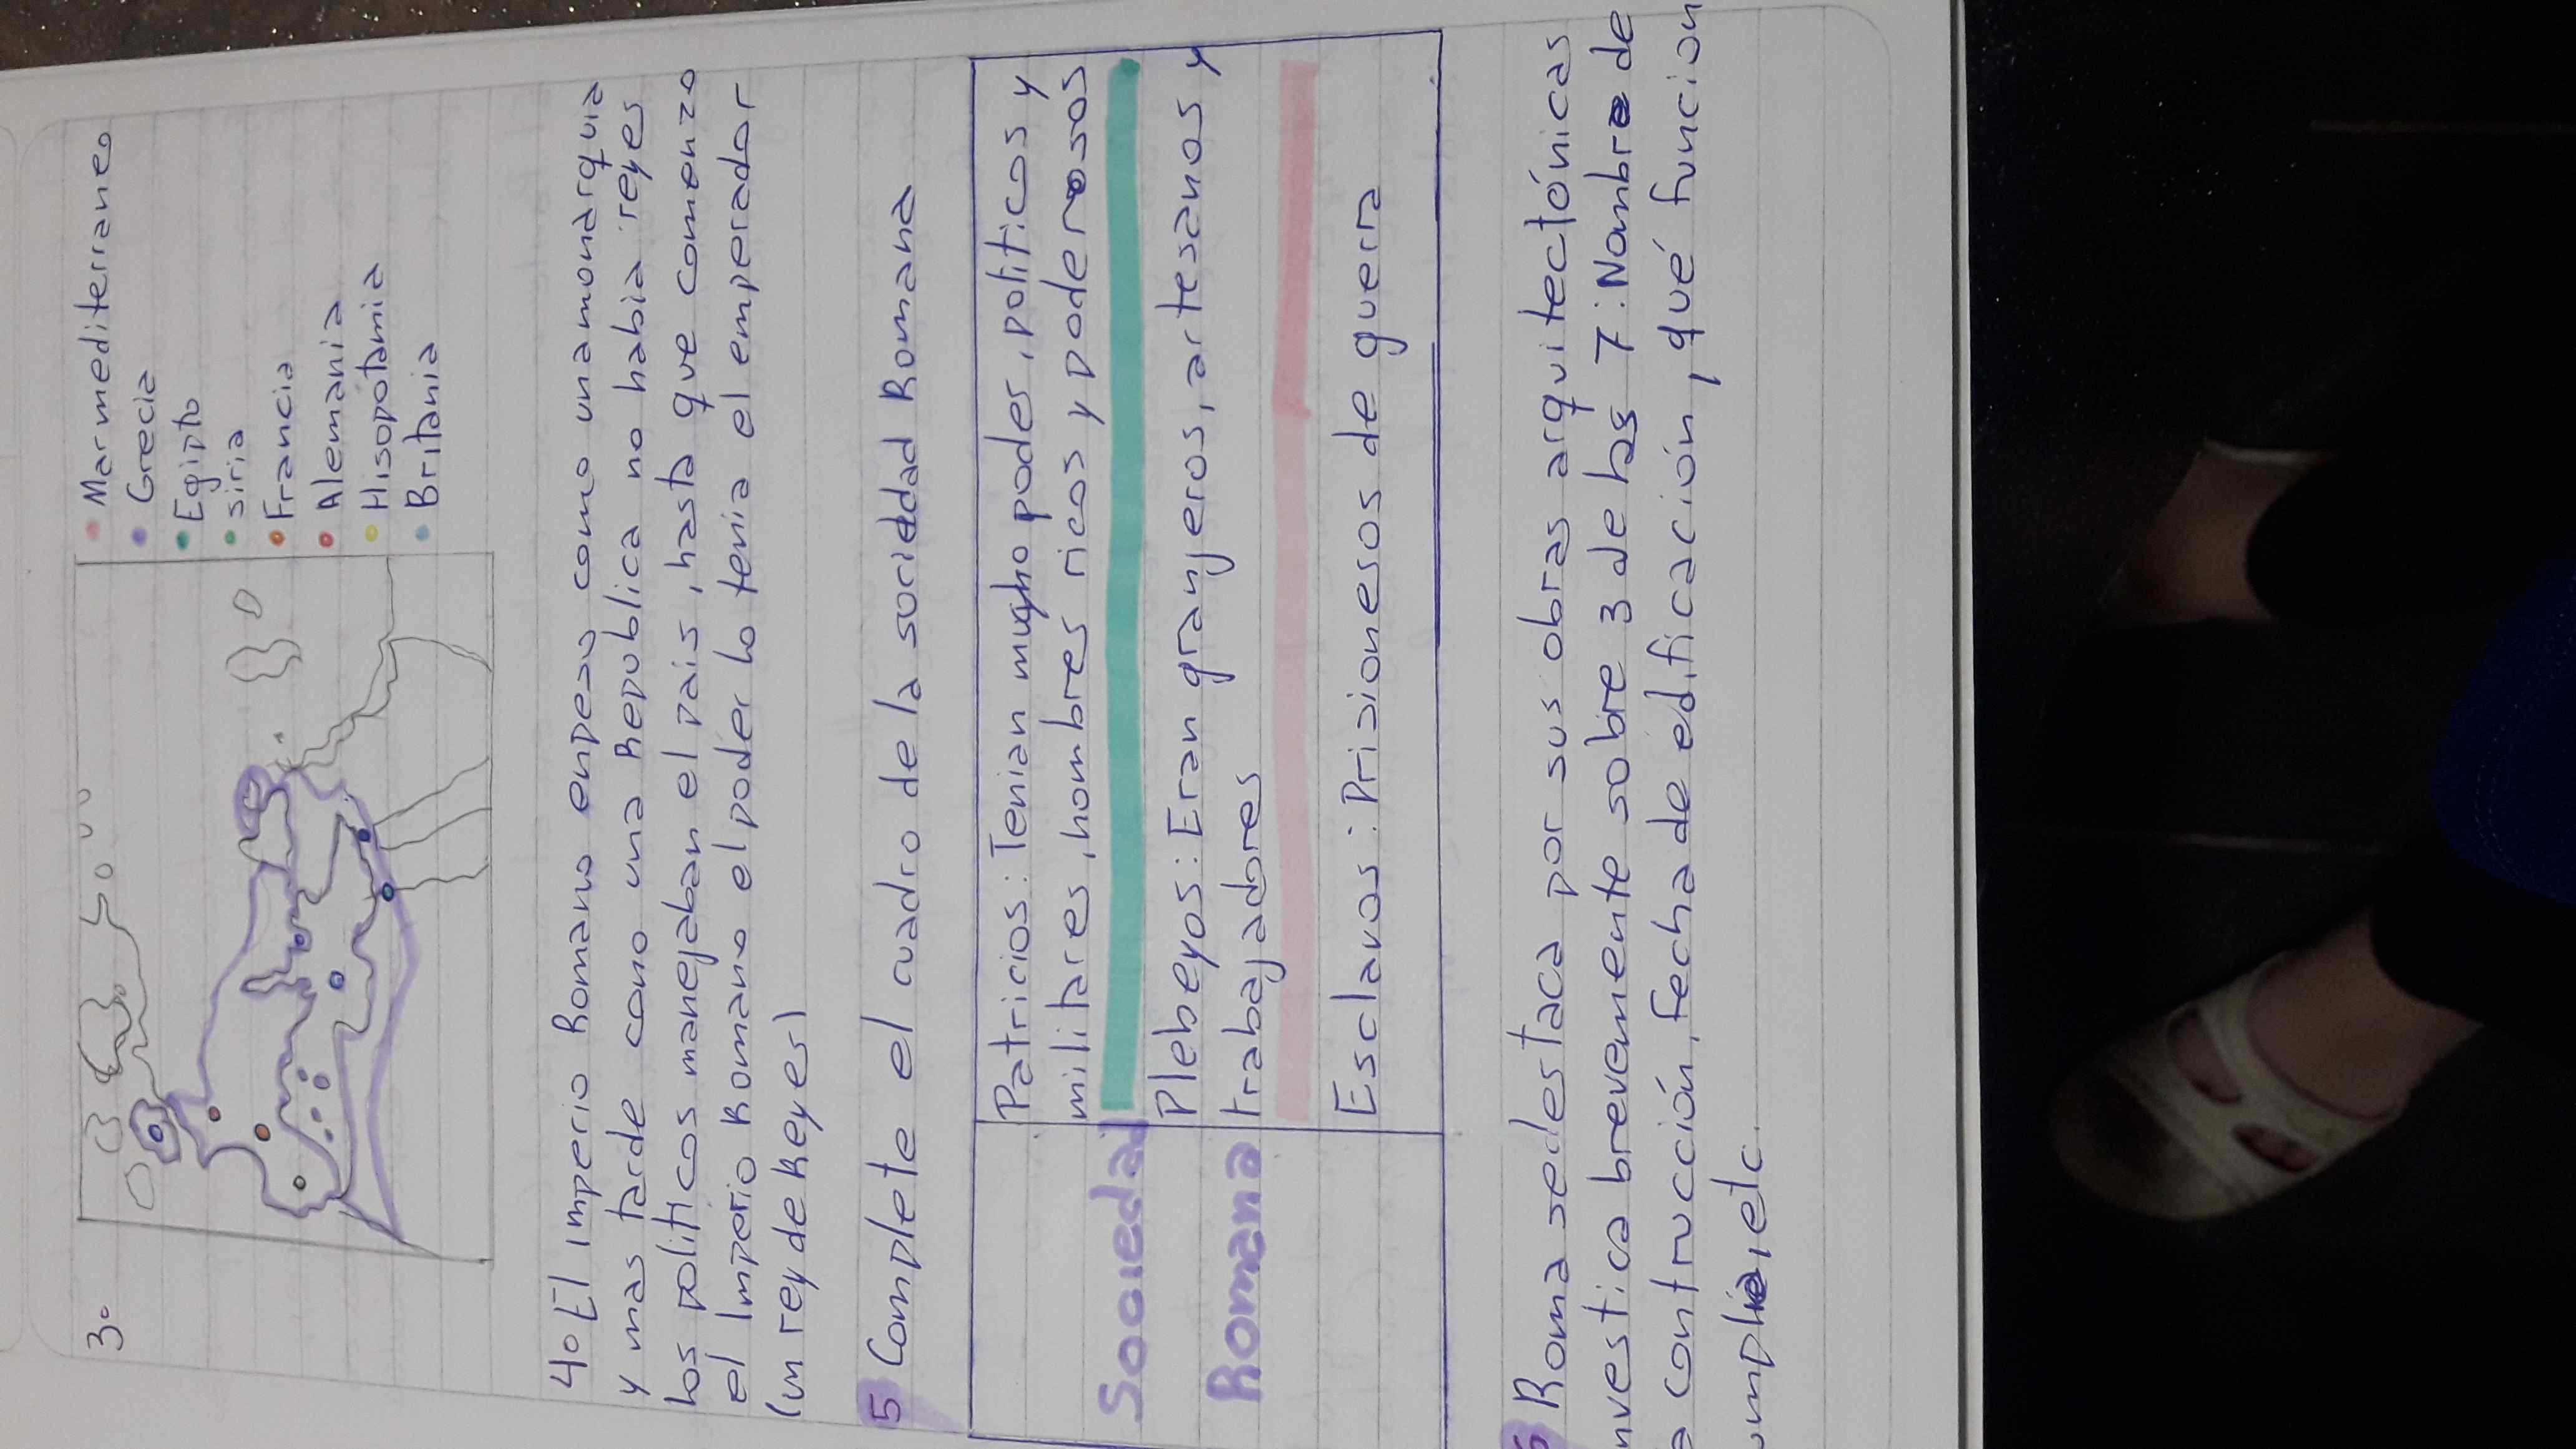 3.
Mar mediterraneo
Grecia
Egipto
siria
Francia
Alemania
Hisopotamia
Britania
4. El imperio Romano enpezo como una monarquia
y mas tarde como una Republica no habia reyes
los politicos manejaban el pais, hasta que comenzo
el Imperio Romano el poder lo tenia el emperador
(un rey de Reyes)
5 Complete el cuadro de la sociedad Romana
Sociedad
Romana
Patricios: Tenian mucho poder, politicos y
militares, hombres ricos y poderosos
Plebeyos: Eran granjeros, artesanos y
trabajadores
Esclavos: Prizionesos de guerra
6 Roma se destaca por sus obras arquitectónicas
nvestica brevemente sobre 3 de las 7: Nombre de
a contrucción, fecha de edificación, qué funcion
umplia, etc.